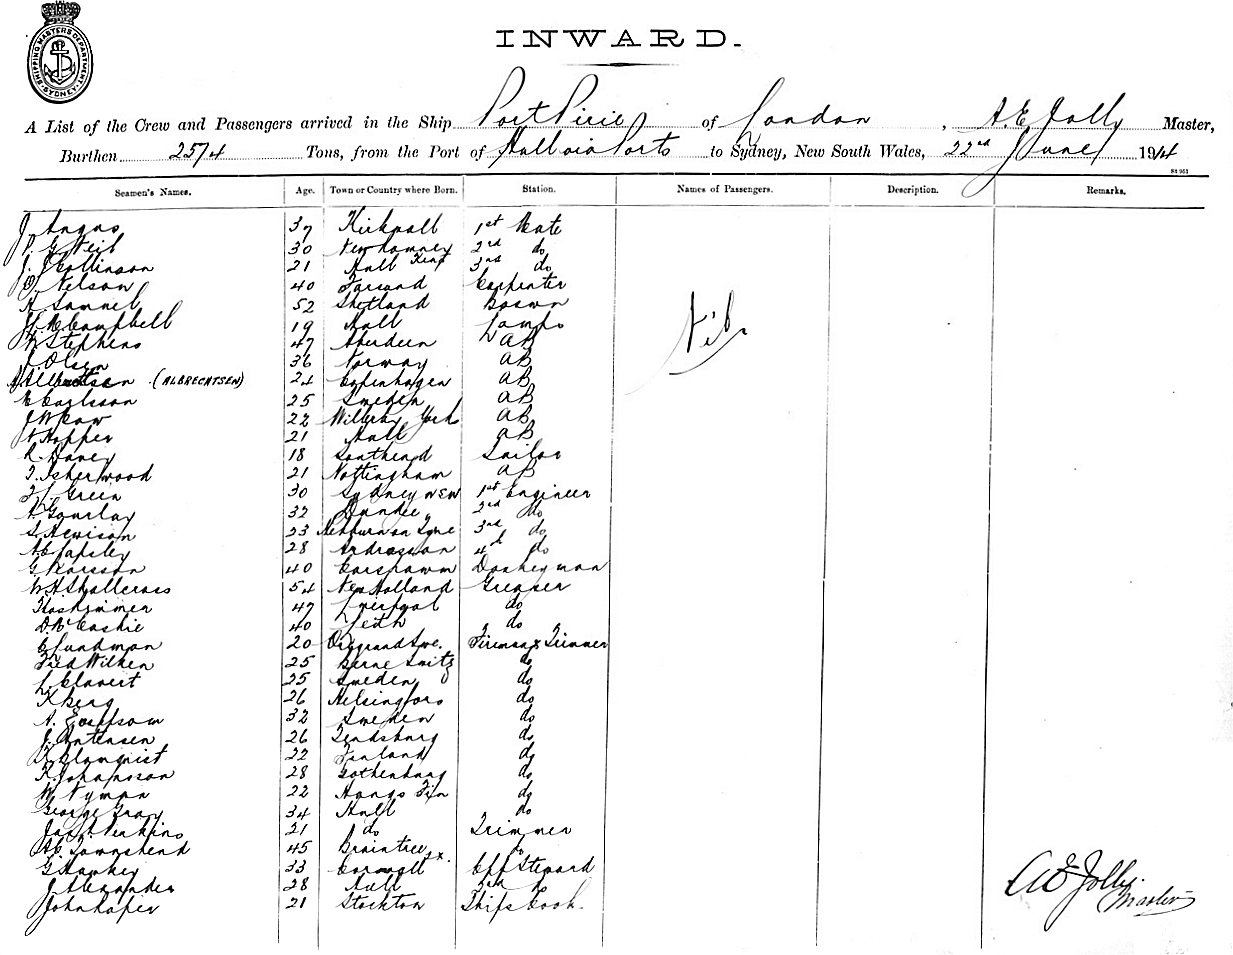 SHIPPING MASTERS DEPARTMENT SYDNEY
INWARD.
A List of the Crew and Passengers arrived in the Ship Port Pirie of London, A. E. Jolly Master,
Burthen 2574 Tons, from the Port of Hull via Ports to Sydney, New South Wales, 22nd June 1914
St 951
Seamen's Names. Age. Town or Country where Born. Station. Names of Passengers. Description. Remarks.
J Angus 37 1st Mate
30 New Romney 2nd do
J. J Collinson 21 Hull 3rd do
Nelson 40 Carpenter
Samuel 52 Shetland Bosun
Campbell 19 Hull Lamps
Stephens 47 Aberdeen AB
J Olsen 36 Norway AB
(ALBRECHTSEN) 24 Copenhagen AB
Carlsson 25 Sweden AB
22 York AB
Hopper 21 Hull AB
R. Davey 18 Southend Sailor
T. Isherwood 21 Nottingham AB
Green 30 Sydney NSW 1st Engineer
Gourlay 32 Dundee 2nd do
S Hewison 23 Hebburn on Tyne 3rd do
28 Ardrossan 4th do
G 40 Donkeyman
W H Shallcross 54 New Holland Greaser
47 Liverpool do
40 Leith do
C Lundman 20 Fireman & Trimmer
Fred Wilken 25 do
25 Sweden do
K Berg 26 Helsingfors do
A. 32 Sweden do
J. 26 do
22 Finland do
K. Johansson 28 Gothenburg do
W Nyman 22 Fin do
George Gray 34 Hull do
Perkins 21 do Trimmer
Townshend 45 Braintree do
G Hawkey 33 Steward
J Alexander 28 Hull 2nd do
John 21 Stockton Ships Cook.
Nil.
A E Jolly.
Master